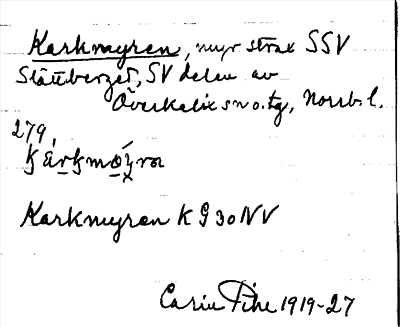 Karkmyren, myr strax SSV
Slåttberget, SV delen av
Överkalix sn o. tg, Norrb. l.
279,
Karkmyren K G 30 NV
Carin Pihl 1919-27